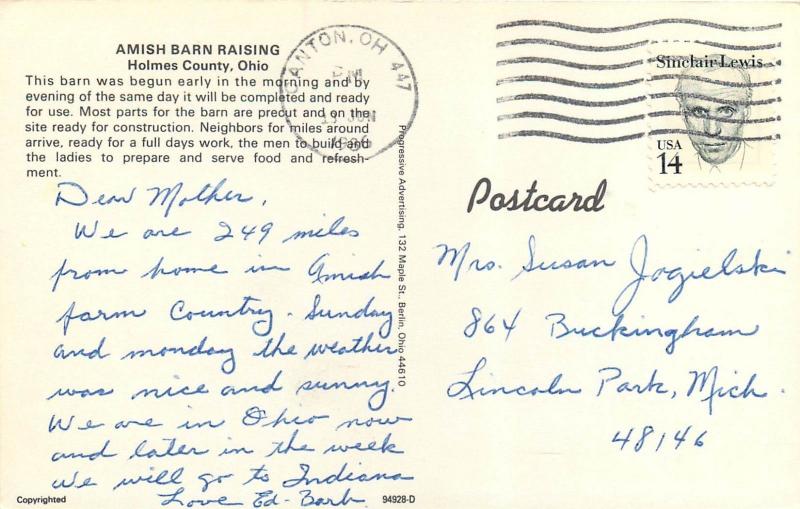 AMISH BARN RAISING
Holmes County, Ohio
This barn was begun early in the morning and by
evening of the same day it will be completed and ready
for use. Most parts for the barn are precut and on the
site ready for construction. Neighbors for miles around
arrive, ready for a full days work, the men to build and
the ladies to prepare and serve food and refresh-
ment.
Dear Mother,
We are 249 miles
from home in Amish
farm Country. Sunday
and monday the weather
was nice and sunny.
We are in Ohio now
and later in the week
we will go to Indiana
Love Ed-Barb.
Copyrighted
94928-D
Progressive Advertising, 132 Maple St., Berlin, Ohio 44610
CANTON, OH 447
PM
JUN
Sinclair Lewis
USA
14
Postcard
Mrs. Susan Jogielski
864 Buckingham
Lincoln Park, Mich.
48146